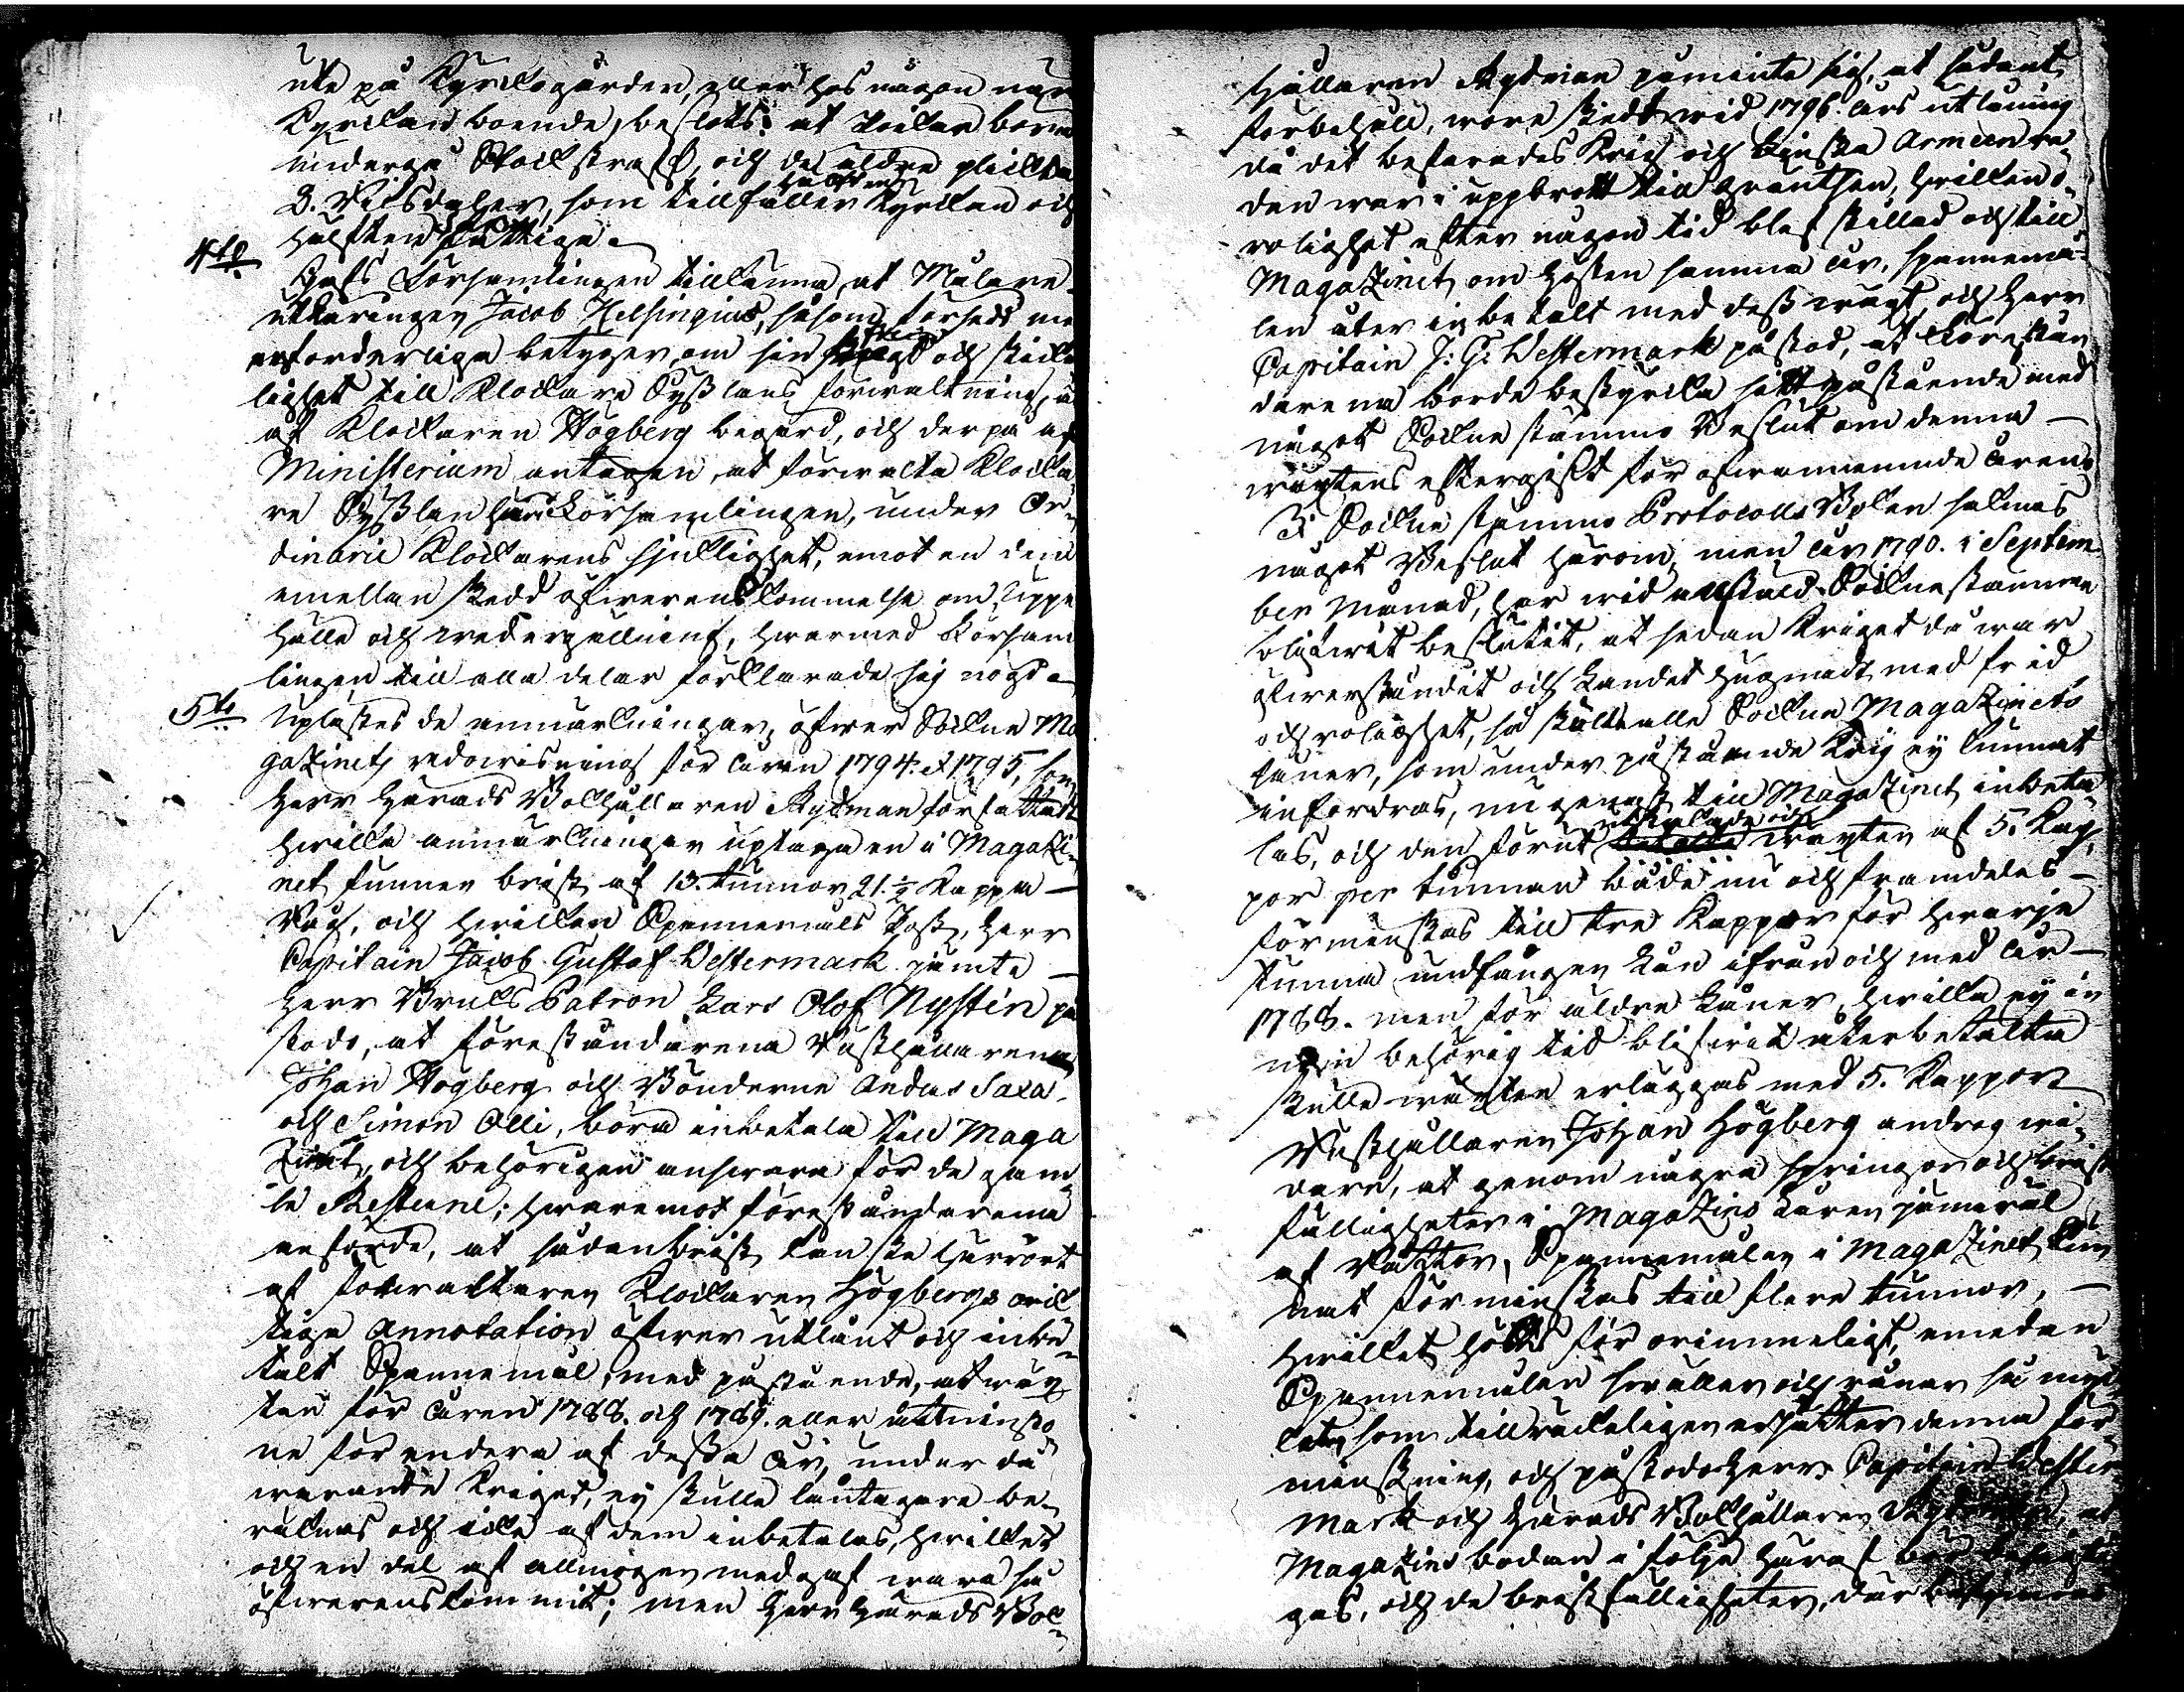 ute på Kyrckogården, eller hos någon när
Kyrckan boende, beslöts: at Poickar borne
undergå Stockstraff, och de äldre plickta
3. Riksdaler, som tillfaller hälften Kyrckan och
hälften fattige.
4to
Gafs Församlingen tillkänna, at Målare
utläringen Jacob Helsingius, såsom försedd me
erforderliga betyger, om sin frägd och skick
lighet till Klockare Sysslans förwaltning, ä
af Klockaren Högberg begärd, och derpå af
Ministerium antagen, at förwalta Klocka
re Sysslan här i Församlingen, under Or¬
dinarie Klockarens sjuklighet, emot en dem
emellan skedd öfwerenskommelse om uppe
hälle och wedergällning, hwarmed Försam
lingen till alla delar förklarade sig nögd.
5to
Uplästes de anmärkningar, öfwer Sockne Ma
gaZinets redowisning för åren 1794. et 1795, som
Herr Härads Bokhållaren Rydman författadt
hwilka anmärkningar uptaga en i MagaZi¬
net funnen brist af 13. tunnor 21.½ Kappa
Råg, och hwilken Spannemåls Post, Herr
Capitain Jacob Gustaf Westermark jämte
Herr Bruks Patron Lars Olof Nystén på
stodo, at Föreståndarena Rusthållarena
Johan Högberg och Bönderne Anders Saxa
och Simon Olli, böra inbetala till Maga
Zinet, och behörigen answara för de gam
la Resterne; hwaremot föreståndarena
anförde, at sådan brist kan ske härrört
af förwaltaren Klockaren Högbergs orik
tige Annotation öfwer utlånt och inbe¬
talt Spannemål, med påstående, at wäx
ten för åren 1788. och 1789. eller åtminsto
ne för endera af dessa år, under då
warande Kriget, ej skulle låntagare be¬
räknas och icke af dem inbetalas, hwilket
och en del af allmogen medgaf wara så
öfwerenskommit; men Herr Härads Bok¬
hållaren Rydman påminte sig, at sådant
förbehåll, wore skedt wid 1796. års utlåning
då det befarades Krig och Finska Armeen re¬
dan war i uppbrott till Gräntsen, hwilken o¬
rolighet efter någon tid blef stillad och till
MagaZinet om Hösten samma år, spannemå¬
len åter inbetalt med dess wäxt, och Herr
Capitain J: G: Westermark påstod, at Förestån
darena borde bestyrcka sitt påstående med
något Sockne stämmo Beslut om denna
wäxtens eftergift för ofwannemnde åren.
I Sockne stämmo Protocolls Boken saknas
något Beslut härom, men år 1790. i Septem
ber Månad, har wid allstäld Socknestämma
blifwit beslutit, at sedan Kriget då war
öfwerståndit och Landet hugnadt med frid
och rolighet, så skulle alla Sockne MagaZinets
låner, som under påstående Krig ej kunnat
infordras, nu genast till MagaZinet inbeta
las, och den förut utstakade och wäxten af 5. Kap¬
por per tunnan både nu och framdeles
förminskas till tre Kappor för hwarje
tunna undfången Lån ifrån och med år
1788. men för äldre Låner, hwilka ej in
nom behörig tid blifwit återbetalta
skulle wäxten erläggas med 5. Kappor
Rusthållaren Johan Högberg androg wi¬
dare, at genom några springor och brist
fälligheter i MagaZins Laren jämwäl
af Råttor, Spannemålen i MagaZinet kun
nat förminskas till flere tunnor,
hwilket hölts för orimmeligt, emedan
Spannemålen swäller och råner så myc
ket, som tillräckeligen ersätter denna för
minskning, och påstodo Herr Capitain Wester
mark och Härads Bokhållaren Rydman, at
MagaZins bodan i följe häraf bör besigti
gas, och de bristfälligheter, där befinnas